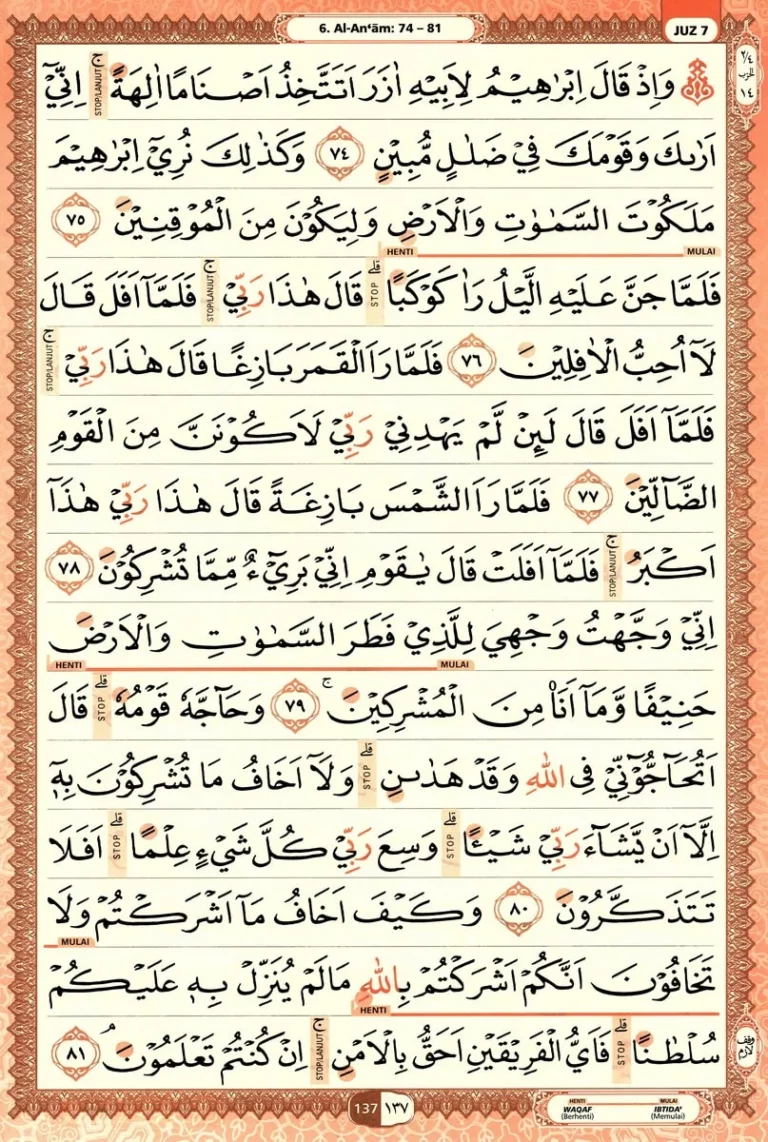 6. Al-An‘ām: 74 – 81
JUZ 7
٢/٤
الحزب
١٤
وَاِذْ قَالَ اِبْرٰهِيْمُ لِاَبِيْهِ اٰزَرَ اَتَتَّخِذُ اَصْنَامًا اٰلِهَةً ۚ STOP/LANJUT اِنِّيْٓ
اَرٰىكَ وَقَوْمَكَ فِيْ ضَلٰلٍ مُّبِيْنٍ ٧٤ وَكَذٰلِكَ نُرِيْٓ اِبْرٰهِيْمَ
مَلَكُوْتَ السَّمٰوٰتِ وَالْاَرْضِ وَلِيَكُوْنَ مِنَ الْمُوْقِنِيْنَ ٧٥
HENTI MULAI
فَلَمَّا جَنَّ عَلَيْهِ الَّيْلُ رَاٰ كَوْكَبًا ۗ STOP قَالَ هٰذَا رَبِّيْ ۚ STOP/LANJUT فَلَمَّآ اَفَلَ قَالَ
لَآ اُحِبُّ الْاٰفِلِيْنَ ٧٦ فَلَمَّا رَاَ الْقَمَرَ بَازِغًا قَالَ هٰذَا رَبِّيْ ۚ STOP/LANJUT
فَلَمَّآ اَفَلَ قَالَ لَىِٕنْ لَّمْ يَهْدِنِيْ رَبِّيْ لَاَكُوْنَنَّ مِنَ الْقَوْمِ
الضَّاۤلِّيْنَ ٧٧ فَلَمَّا رَاَ الشَّمْسَ بَازِغَةً قَالَ هٰذَا رَبِّيْ هٰذَآ
اَكْبَرُ ۚ STOP/LANJUT فَلَمَّآ اَفَلَتْ قَالَ يٰقَوْمِ اِنِّيْ بَرِيْۤءٌ مِّمَّا تُشْرِكُوْنَ ٧٨
اِنِّيْ وَجَّهْتُ وَجْهِيَ لِلَّذِيْ فَطَرَ السَّمٰوٰتِ وَالْاَرْضَ
HENTI MULAI
حَنِيْفًا وَّمَآ اَنَا۠ مِنَ الْمُشْرِكِيْنَ ۚ ٧٩ وَحَاۤجَّهٗ قَوْمُهٗ ۗ STOP قَالَ
اَتُحَاۤجُّوْۤنِّيْ فِى اللّٰهِ وَقَدْ هَدٰىنِ ۗ STOP وَلَآ اَخَافُ مَا تُشْرِكُوْنَ بِهٖٓ
اِلَّآ اَنْ يَّشَاۤءَ رَبِّيْ شَيْـًٔا ۗ STOP وَسِعَ رَبِّيْ كُلَّ شَيْءٍ عِلْمًا ۗ STOP اَفَلَا
تَتَذَكَّرُوْنَ ٨٠ وَكَيْفَ اَخَافُ مَآ اَشْرَكْتُمْ وَلَا
MULAI
تَخَافُوْنَ اَنَّكُمْ اَشْرَكْتُمْ بِاللّٰهِ مَا لَمْ يُنَزِّلْ بِهٖ عَلَيْكُمْ
HENTI
سُلْطٰنًا ۗ STOP فَاَيُّ الْفَرِيْقَيْنِ اَحَقُّ بِالْاَمْنِ ۚ STOP/LANJUT اِنْ كُنْتُمْ تَعْلَمُوْنَ ۘ ٨١
وقف لازم
137 ١٣٧
HENTI MULAI
WAQAF IBTIDA'
(Berhenti) (Memulai)